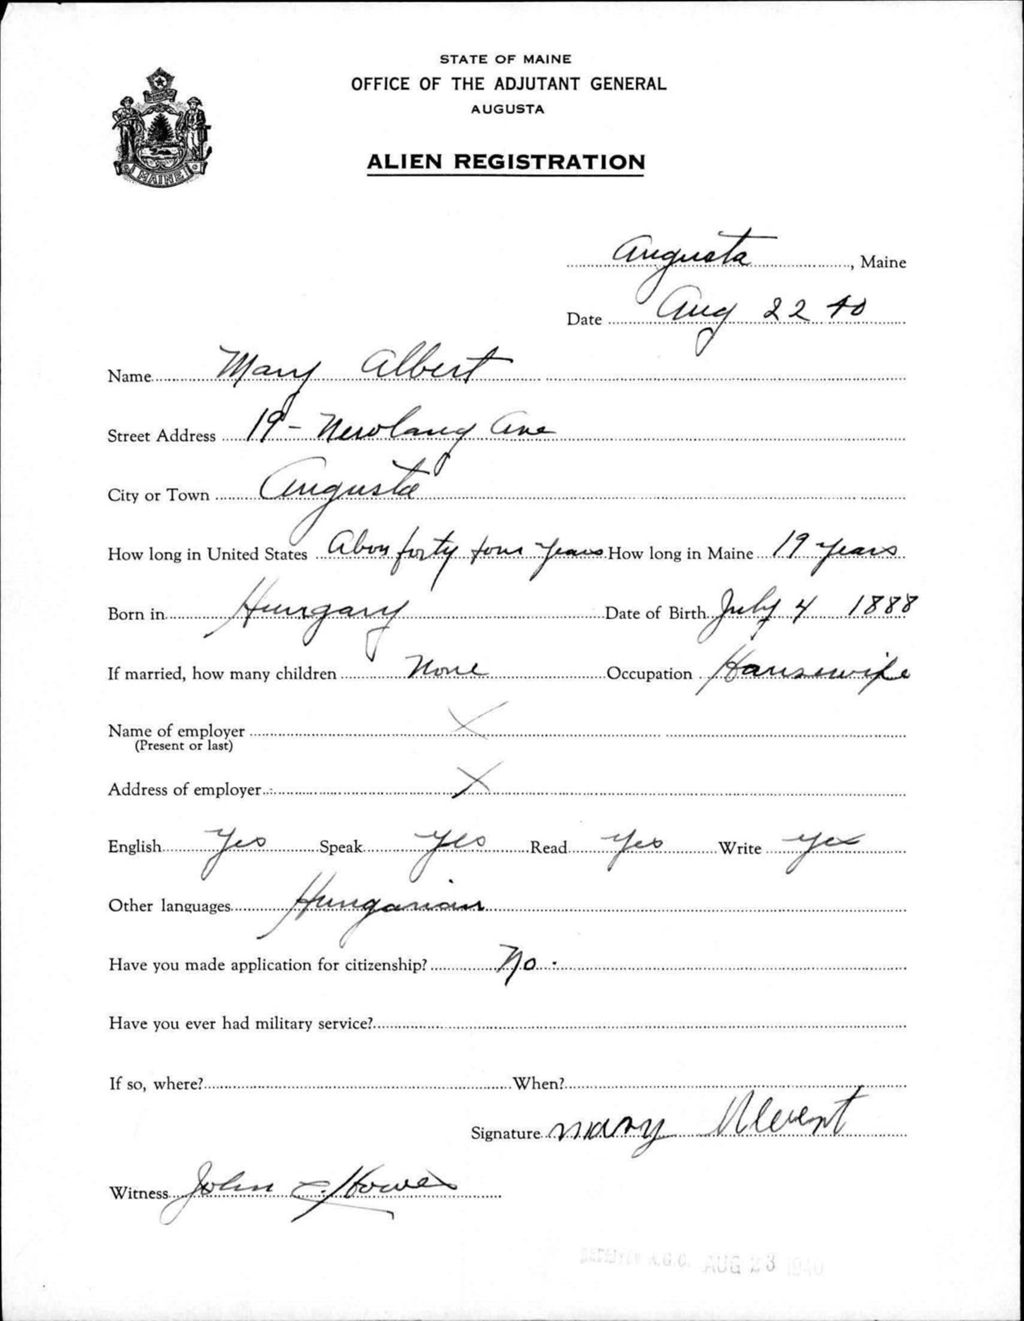 STATE OF MAINE
OFFICE OF THE ADJUTANT GENERAL
AUGUSTA
ALIEN REGISTRATION
MAINE
Augusta, Maine
Date Aug 22 40
Name Mary Albert
Street Address 19 - Ave
City or Town Augusta
How long in United States Abou forty four years How long in Maine 19 years
Born in Hungary Date of Birth July 4 1888
If married, how many children None Occupation Housewife
Name of employer X
(Present or last)
Address of employer X
English Yes Speak Yes Read Yes Write Yes
Other languages Hungarian
Have you made application for citizenship? No.
Have you ever had military service?
If so, where? When?
Signature Mary
Witness John
AUG 23 1940